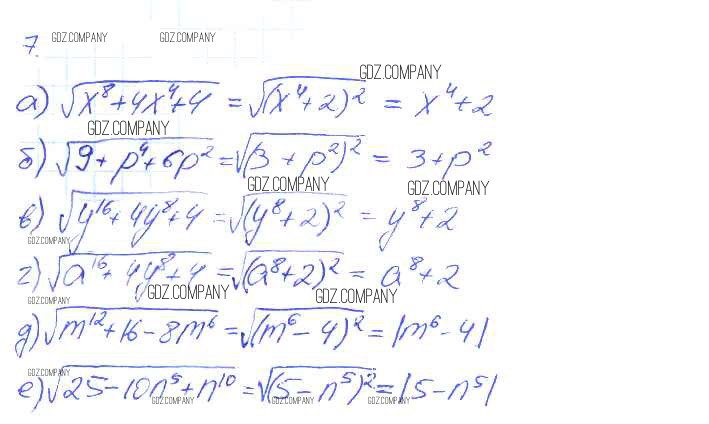 7. GDZ.COMPANY GDZ.COMPANY
GDZ.COMPANY
а) √(x⁸+4x⁴+4) = √((x⁴+2)²) = x⁴+2
GDZ.COMPANY
б) √(9+p⁴+6p²) = √((3+p²)²) = 3+p²
GDZ.COMPANY GDZ.COMPANY
в) √(y¹⁶+4y⁸+4) = √((y⁸+2)²) = y⁸+2
GDZ.COMPANY
г) √(a¹⁶+4y⁸+4) = √((a⁸+2)²) = a⁸+2
GDZ.COMPANY GDZ.COMPANY
GDZ.COMPANY
д) √(m¹²+16-8m⁶) = √((m⁶-4)²) = |m⁶-4|
GDZ.COMPANY
е) √(25-10n⁵+n¹⁰) = √((5-n⁵)²) = |5-n⁵|
GDZ.COMPANY GDZ.COMPANY GDZ.COMPANY